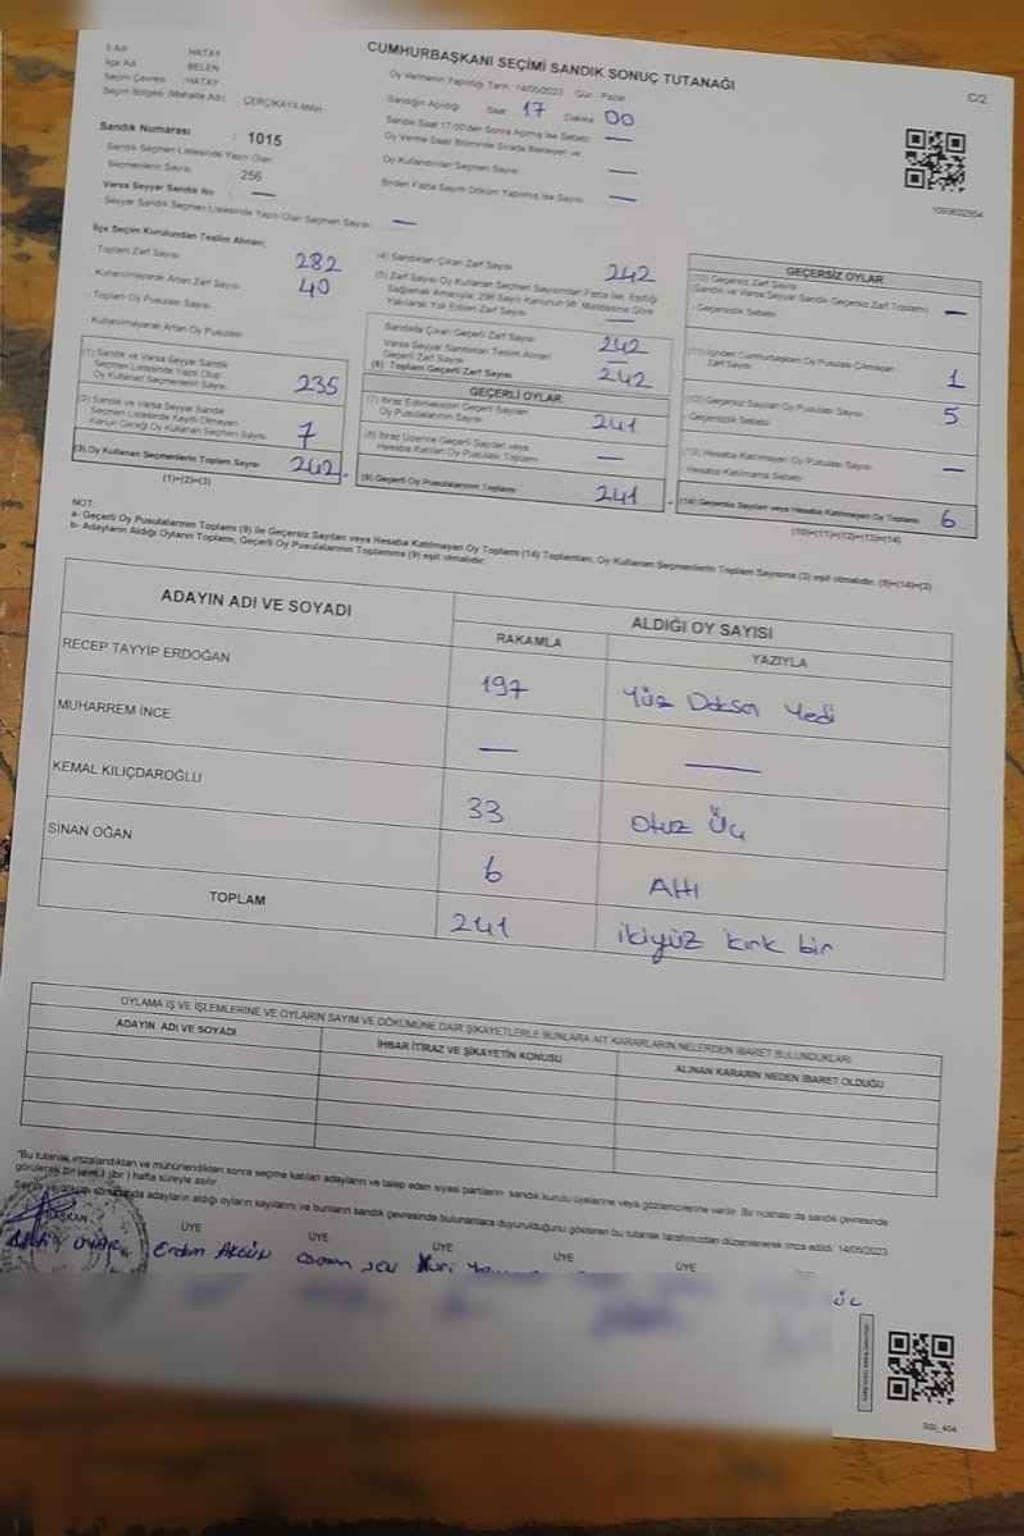 CUMHURBAŞKANI SEÇİMİ SANDIK SONUÇ TUTANAĞI
C/2
İl Adı HATAY
İlçe Adı BELEN
Seçim Çevresi HATAY
Seçim Bölgesi (Mahalle Adı) ÇERÇİKAYA MAH.
Oy Vermenin Yapıldığı Tarih 14/05/2023 Gün Pazar
Sandığın Açıldığı Saat 17 Dakika 00
Sandık Numarası : 1015
Sandık Seçmen Listesinde Yazılı Olan
Seçmenlerin Sayısı 256
Varsa Seyyar Sandık No —
Seyyar Sandık Seçmen Listesinde Yazılı Olan Seçmen Sayısı —
Oy Kullandırılan Seçmen Sayısı —
Birden Fazla Sayım Döküm Yapılmış İse Sayısı —
İlçe Seçim Kurulundan Teslim Alınan;
Toplam Zarf Sayısı 282
Kullanılmayarak Artan Zarf Sayısı 40
Toplam Oy Pusulası Sayısı
Kullanılmayarak Artan Oy Pusulası
(1) Sandık ve Varsa Seyyar Sandık
Seçmen Listesinde Yazılı Olup
Oy Kullanan Seçmenlerin Sayısı 235
(2) Sandık ve Varsa Seyyar Sandık
Seçmen Listesinde Kayıtlı Olmayan
Kanun Gereği Oy Kullanan Seçmen Sayısı 7
(3) Oy Kullanan Seçmenlerin Toplam Sayısı 242
(1)+(2)=(3)
(4) Sandıktan Çıkan Zarf Sayısı 242
(5) Zarf Sayısı Oy Kullanan Seçmen Sayısından Fazla İse, Eşitliği
Sağlamak Amacıyla; 298 Sayılı Kanunun 98. Maddesine Göre
Yakılarak Yok Edilen Zarf Sayısı —
Sandıkta Çıkan Geçerli Zarf Sayısı 242
Varsa Seyyar Sandıktan Teslim Alınan
Geçerli Zarf Sayısı
(6) Toplam Geçerli Zarf Sayısı 242
GEÇERLİ OYLAR
(7) İtiraz Edilmeksizin Geçerli Sayılan
Oy Pusulalarının Sayısı 241
(8) İtiraz Üzerine Geçerli Sayılan veya
Hesaba Katılan Oy Pusulası Toplamı —
(9) Geçerli Oy Pusulalarının Toplamı 241
GEÇERSİZ OYLAR
(10) Geçersiz Zarf Sayısı
(Sandık ve Varsa Seyyar Sandık Geçersiz Zarf Toplamı) —
Geçersizlik Sebebi
(11) İçinden Cumhurbaşkanı Oy Pusulası Çıkmayan
Zarf Sayısı 1
(12) Geçersiz Sayılan Oy Pusulası Sayısı 5
Geçersizlik Sebebi
(13) Hesaba Katılmayan Oy Pusulası Sayısı —
Hesaba Katılmama Sebebi
(14) Geçersiz Sayılan veya Hesaba Katılmayan Oy Toplamı 6
(10)+(11)+(12)+(13)=(14)
NOT:
a- Geçerli Oy Pusulalarının Toplamı (9) ile Geçersiz Sayılan veya Hesaba Katılmayan Oy Toplamı (14) Toplamları, Oy Kullanan Seçmenlerin Toplam Sayısına (3) eşit olmalıdır. (9)+(14)=(3)
b- Adayların Aldığı Oyların Toplamı, Geçerli Oy Pusulalarının Toplamına (9) eşit olmalıdır.
ADAYIN ADI VE SOYADI
ALDIĞI OY SAYISI
RAKAMLA YAZIYLA
RECEP TAYYİP ERDOĞAN 197 Yüz Doksan Yedi
MUHARREM İNCE — —
KEMAL KILIÇDAROĞLU 33 Otuz Üç
SİNAN OĞAN 6 Altı
TOPLAM 241 ikiyüz kırk bir
OYLAMA İŞ VE İŞLEMLERİNE VE OYLARIN SAYIM VE DÖKÜMÜNE DAİR ŞİKAYETLERLE BUNLARA AİT KARARLARIN NELERDEN İBARET BULUNDUKLARI
ADAYIN ADI VE SOYADI
İHBAR İTİRAZ VE ŞİKAYETİN KONUSU
ALINAN KARARIN NEDEN İBARET OLDUĞU
*Bu tutanak imzalandıktan ve mühürlendikten sonra seçime katılan adayların ve talep eden siyasi partilerin sandık kurulu üyelerine veya gözlemcilerine verilir. Bir nüshası da sandık çevresinde
görülecek bir yere 1 (bir) hafta süreyle asılır.
adayların aldığı oyların sayılarını ve bunların sandık çevresinde bulunanlara duyurulduğunu gösteren bu tutanak tarafımızdan düzenlenerek imza edildi. 14/05/2023
BAŞKAN ÜYE ÜYE ÜYE ÜYE ÜYE
Erdem Akgün Osman Nuri